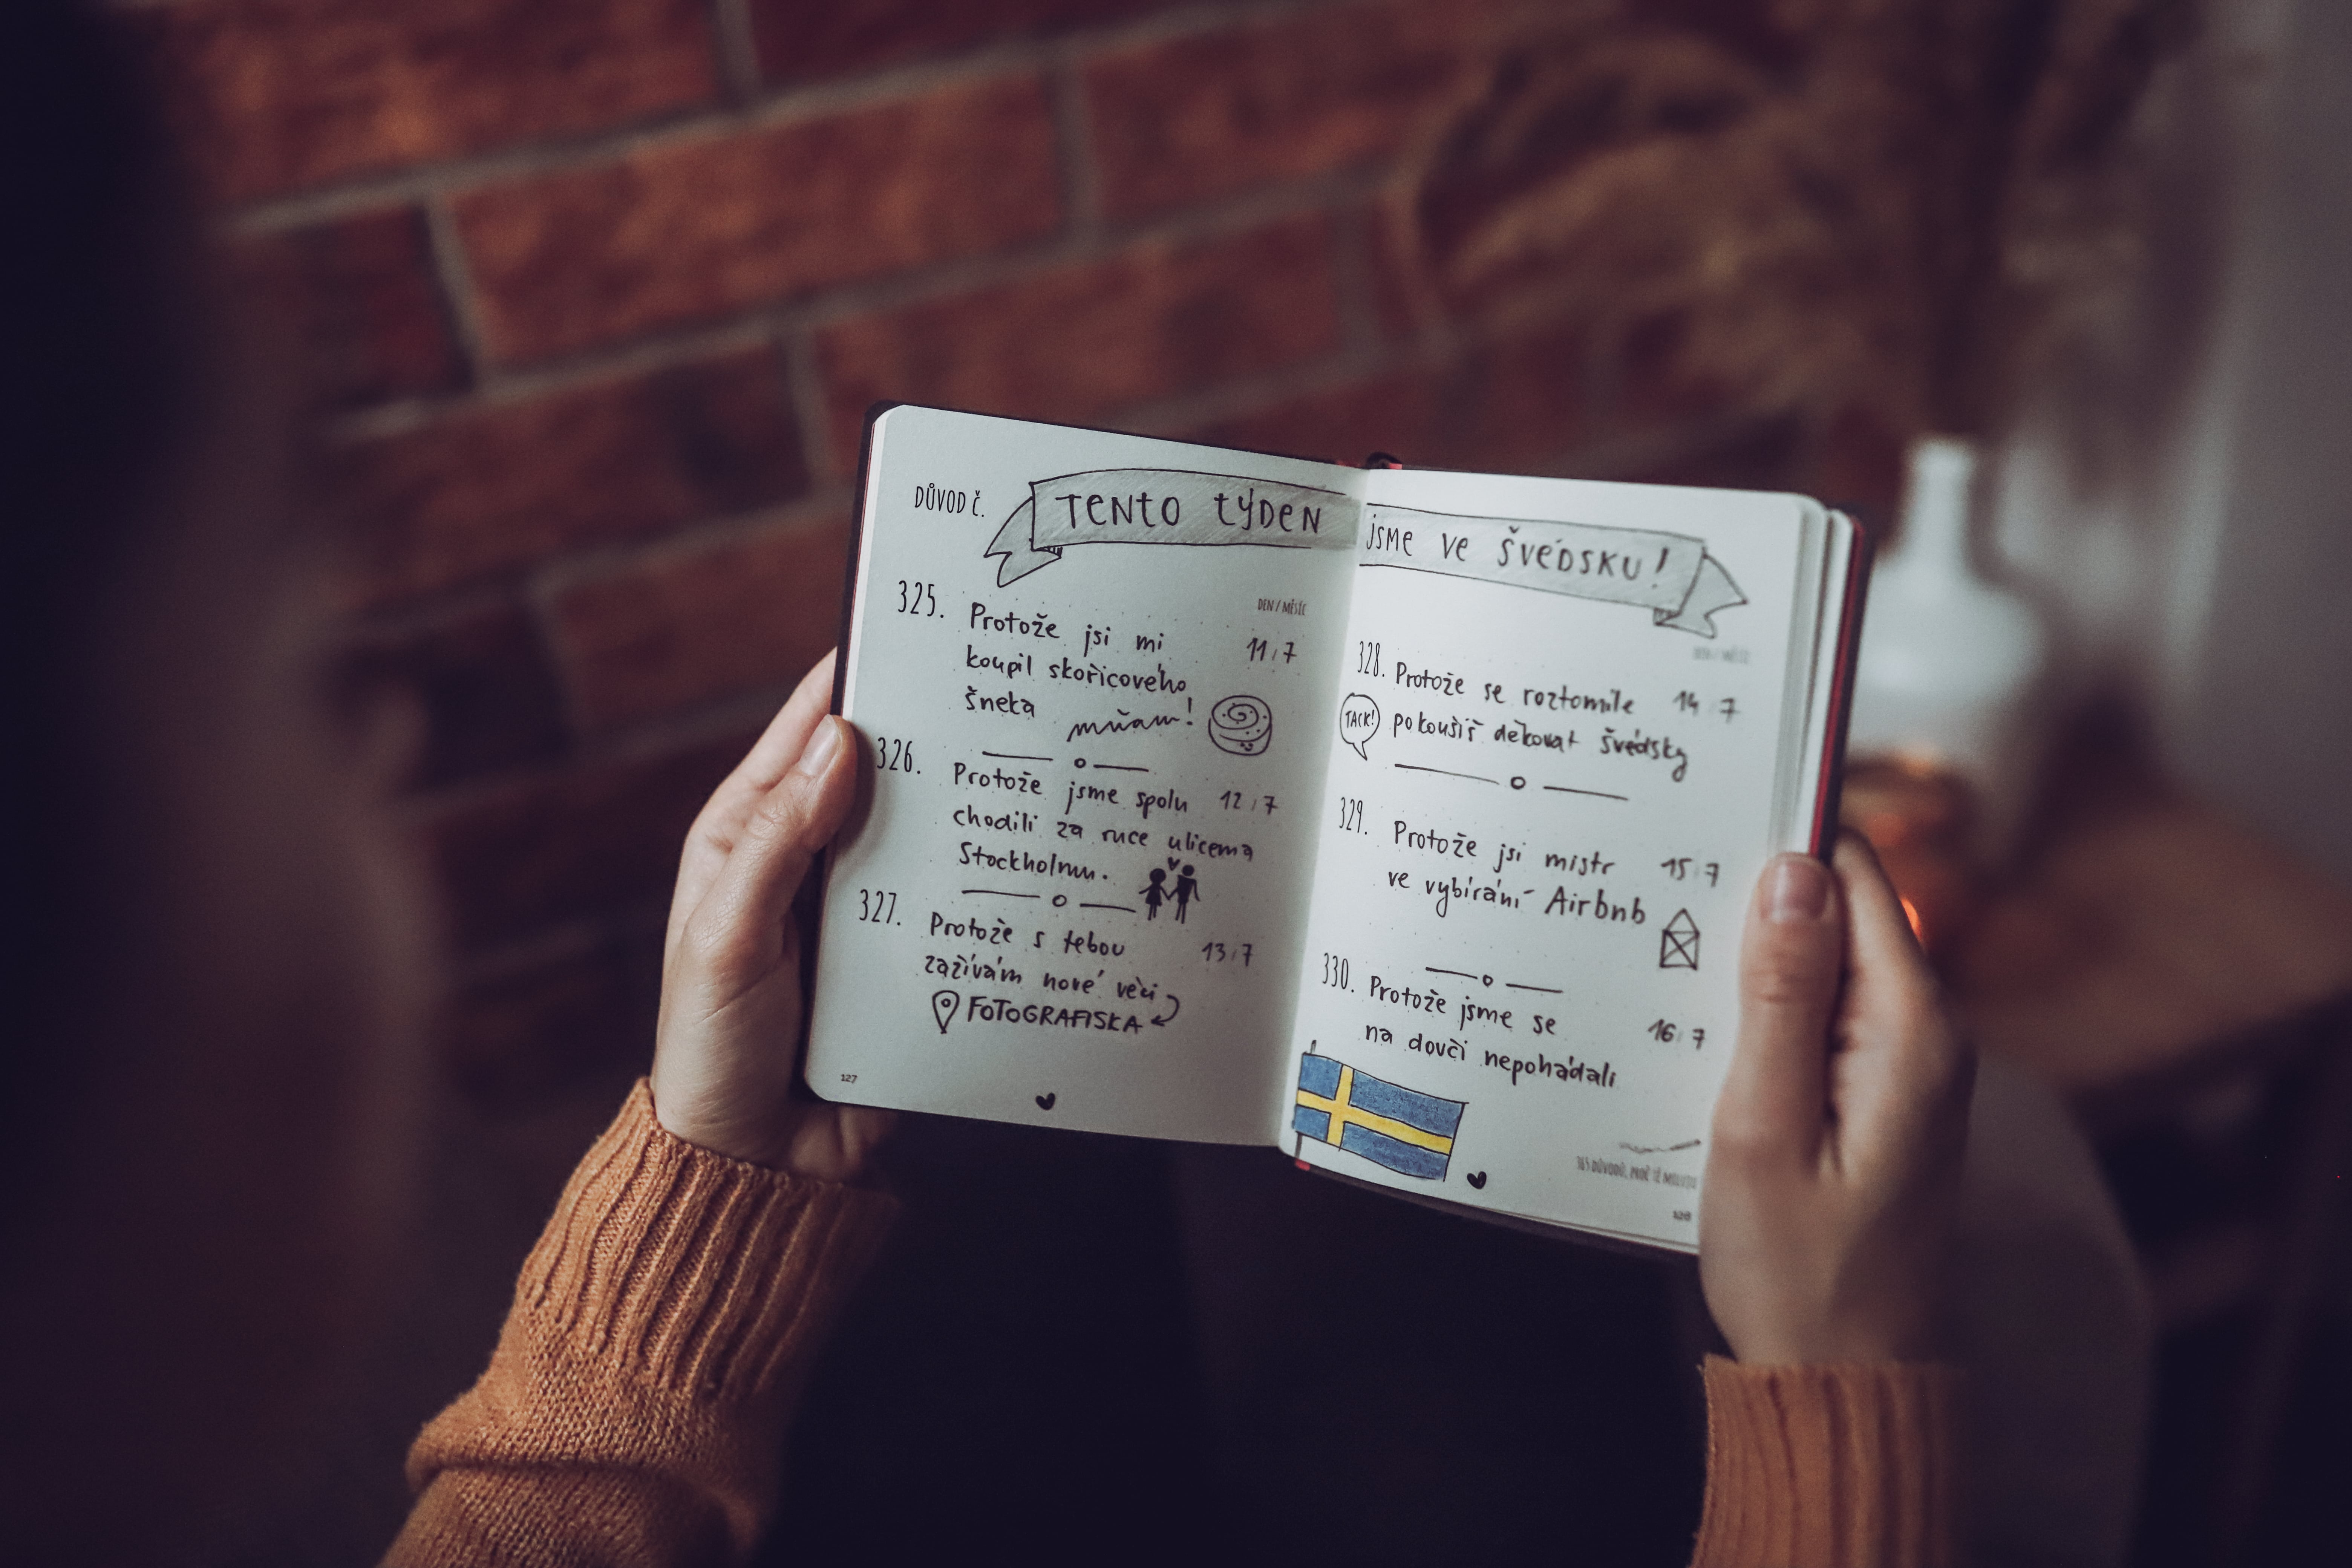 DŮVOD Č.
TENTO TÝDEN jSME VE ŠVÉDSKU!
DEN / MĚSÍC
325. Protože jsi mi 11 / 7
koupil skořicového
šneka mňam!
326. Protože jsme spolu 12 / 7
chodili za ruce ulicema
Stockholmu.
327. Protože s tebou 13 / 7
zažívám nové věci
FOTOGRAFISKA
127
DEN / MĚSÍC
328. Protože se roztomile 14 7
TACK! pokoušíš děkovat švédsky
329. Protože jsi mistr 15 / 7
ve vybírání Airbnb
330. Protože jsme se 16 / 7
na dovči nepohádali
365 DŮVODŮ, PROČ TĚ MILUJU
128